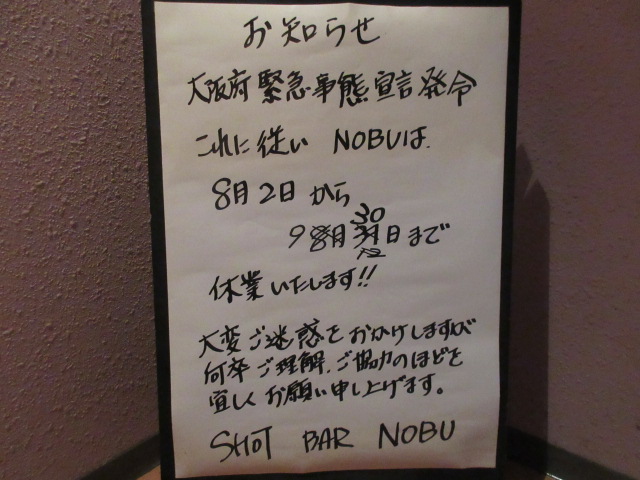 お知らせ
大阪府緊急事態宣言発令
これに従い NOBUは、
8月2日から
30
9 8月31日まで
12
休業いたします!!
大変ご迷惑をおかけしますが
何卒ご理解、ご協力のほどを
宜しくお願い申し上げます。
SHOT BAR NOBU